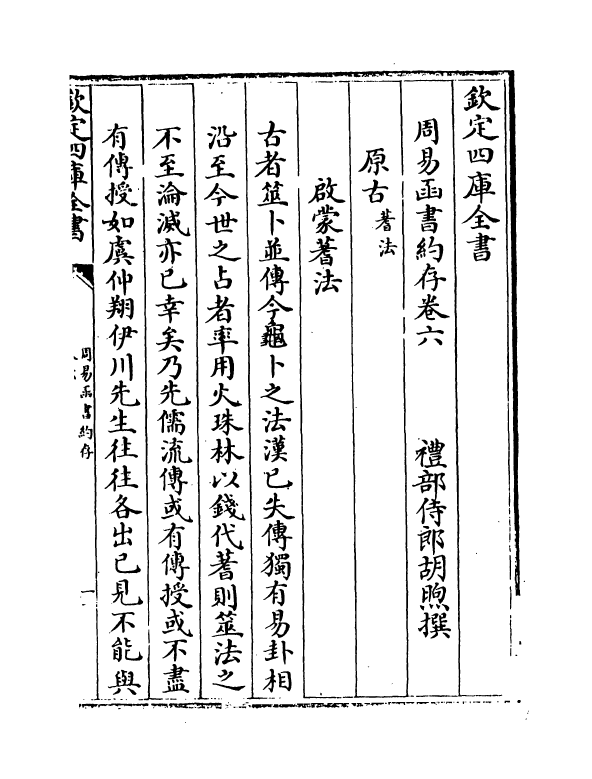 欽定四庫全書
周易函書約存卷六　禮部侍郎胡煦撰
原古蓍法
啟蒙蓍法
古者筮卜並傳今龜卜之法漢已失傳獨有易卦相
沿至今世之占者率用火珠林以錢代蓍則筮法之
不至淪滅亦已幸矣乃先儒流傳或有傳授或不盡
有傳授如虞仲翔伊川先生往往各出已見不能與
欽定四庫全書
周易函書約存
一